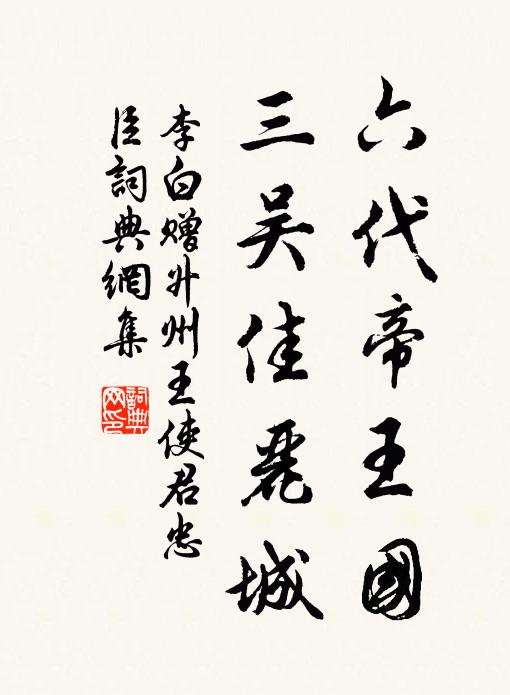 六代帝王國
三吳佳麗城
李白赠升州王使君忠
臣詞典網集
詞典
网印